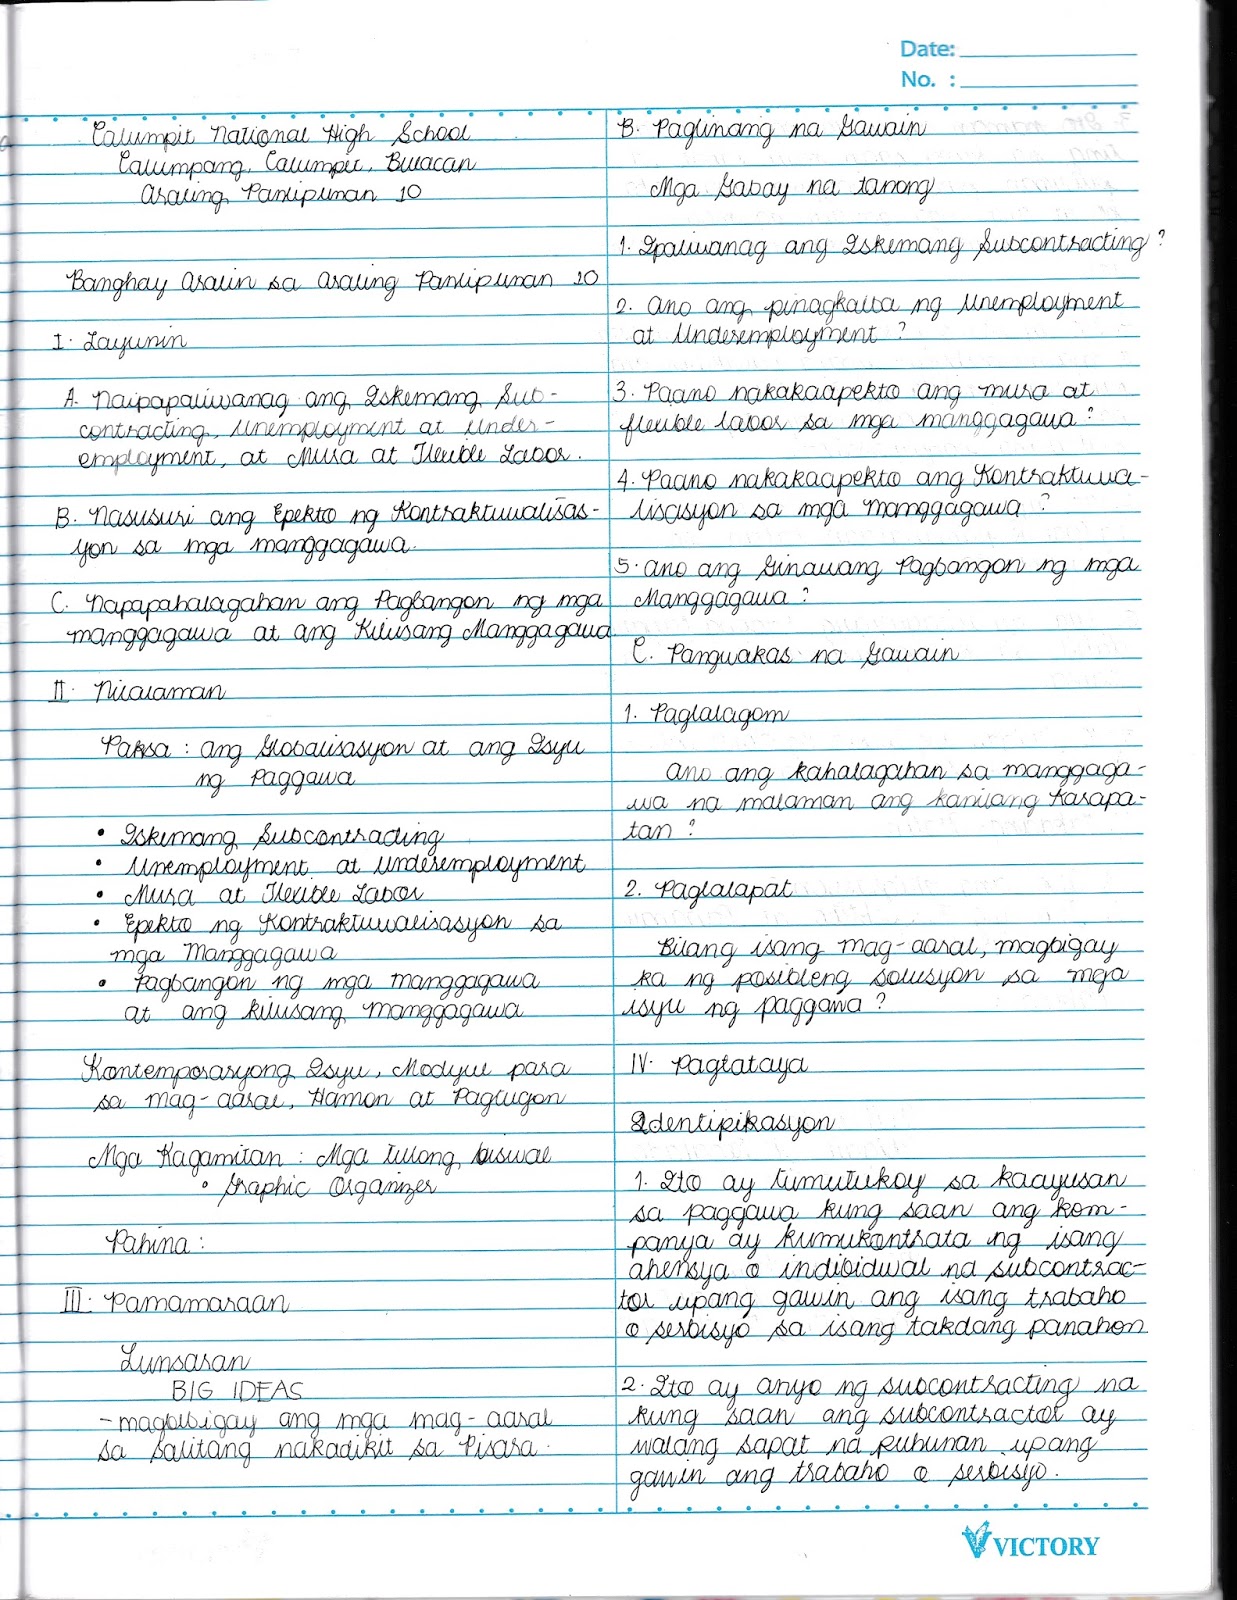 Date:
No. :
Calumpit National High School
Calumpang, Calumpit, Bulacan
Araling Panlipunan 10
Banghay Aralin sa Araling Panlipunan 10
I. Layunin
A. Naipapaliwanag ang Iskemang Sub-
contracting, Unemployment at Under-
employment, at Mura at Flexible Labor.
B. Nasusuri ang Epekto ng Kontraktuwalisas-
yon sa mga manggagawa.
C. Napapahalagahan ang Pagbangon ng mga
manggagawa at ang Kilusang Manggagawa
II. Nilalaman
Paksa : ang Globalisasyon at ang Isyu
ng Paggawa
• Iskemang Subcontracting
• Unemployment at Underemployment
• Mura at Flexible Labor
• Epekto ng Kontraktuwalisasyon sa
mga Manggagawa
• Pagbangon ng mga manggagawa
at ang kilusang manggagawa
Kontemporaryong Isyu, Modyul para
sa mag-aaral, Hamon at Pagtugon
Mga Kagamitan : Mga tulong biswal
• Graphic Organizer
Pahina :
III. Pamamaraan
Lunsaran
BIG IDEAS
- magbibigay ang mga mag-aaral
sa salitang nakadikit sa Pisara.
B. Paglinang na Gawain
Mga Gabay na tanong
1. Ipaliwanag ang Iskemang Subcontracting?
2. Ano ang pinagkaiba ng Unemployment
at Underemployment ?
3. Paano nakakaapekto ang mura at
flexible labor sa mga manggagawa?
4. Paano nakakaapekto ang Kontraktuwa-
lisasyon sa mga manggagawa ?
5. Ano ang Ginawang Pagbangon ng mga
Manggagawa ?
C. Pangwakas na Gawain
1. Paglalagom
Ano ang kahalagahan sa manggaga-
wa na malaman ang kanilang Karapa-
tan ?
2. Paglalapat
Bilang isang mag-aaral, magbigay
ka ng posibleng solusyon sa mga
isyu ng paggawa ?
IV. Pagtataya
Identipikasyon
1. Ito ay tumutukoy sa kaayusan
sa paggawa kung saan ang kom-
panya ay kumukontrata ng isang
ahensya o indibidwal na subcontrac-
tor upang gawin ang isang trabaho
o serbisyo sa isang takdang panahon
2. Ito ay anyo ng subcontracting na
kung saan ang subcontractor ay
walang sapat na puhunan upang
gawin ang trabaho o serbisyo.
VICTORY